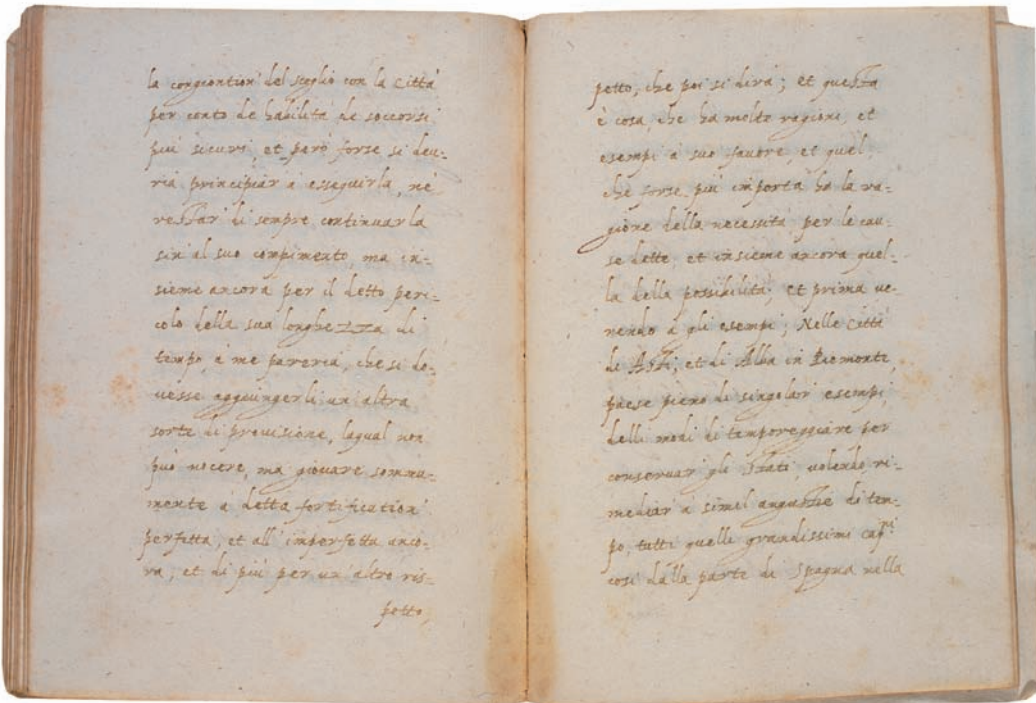 la congiontion' del scoglio con la Città
per conto de habilità di soccorsi
piu sicuri, et però forse si deu=
ria principiar à esseguirla, nè
restar di sempre continuarla
sin al suo compimento, ma in=
sieme ancora per il detto peri=
colo della sua longhezza di
tempo, à me pareria, che si do=
uesse aggiungerli un'altra
sorte di prouisione, laqual non
può nocere, ma giouare somma=
mente à detta fortification'
perfetta, et all'imperfetta anco=
ra, et di più per un'altro ris=
petto,
petto, che poi si dirà; et questa
è cosa, che ha molte ragioni, et
esempi à suo fauore, et quel,
che forse più importa ha la ra=
gione della necessità per le cau=
se dette, et insieme ancora quel=
la della possibilità; et prima ue=
nendo à gli esempi; Nelle Città
di Asti, et di Alba in Piemonte,
paese pieno di singolari esempi
delli modi di temporeggiare per
conseruar gli Stati, uolendo ri=
mediar à simil angustie di tem=
po, tutti quelli grandissimi cap.ni
cosi dalla parte di Spagna nella